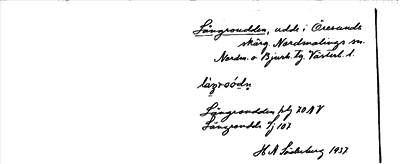 Långrudden, udde i Öresunds
skärg. Nordmalings sn.
Nordm. o Bjurh. tg. Västerb. l.
Långrudden plg 70 A V
Långrudde Sj 107
H A Söderberg 1937